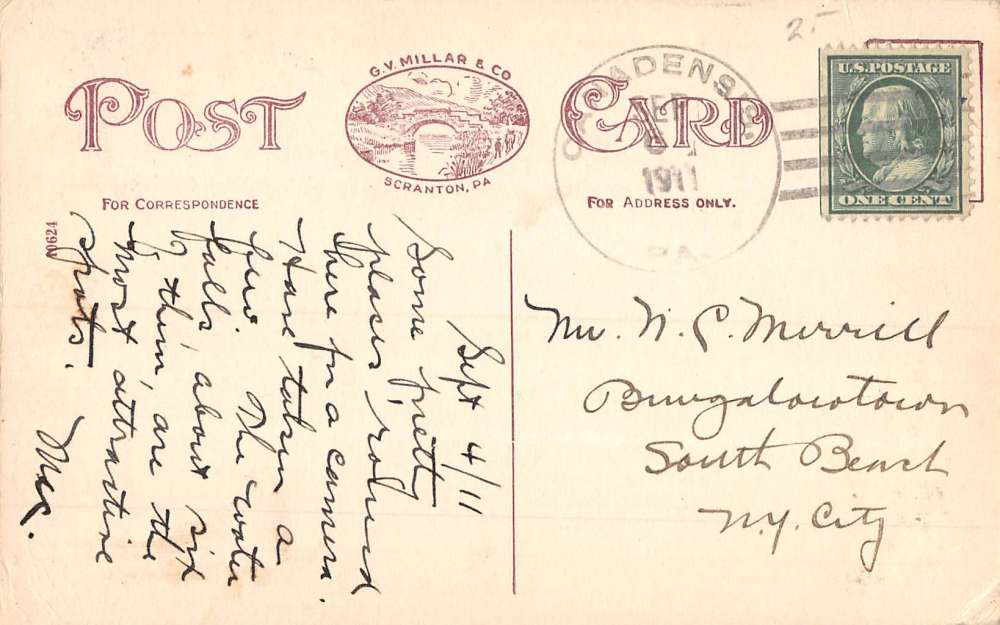 25-
G.V. MILLAR & CO
POST CARD
SCRANTON, PA
U.S. POSTAGE
ONE CENT
CANADENSIS
SEP
1911
PA.
FOR CORRESPONDENCE
FOR ADDRESS ONLY.
A0624
Sept 4/11
Some pretty
places, 'round
here for a camera.
Have taken a
few. The water
falls, about six
of them, are the
most attractive
spots.
Mr. N. C. Merrill
Bungalowtown
South Beach
N.Y. City